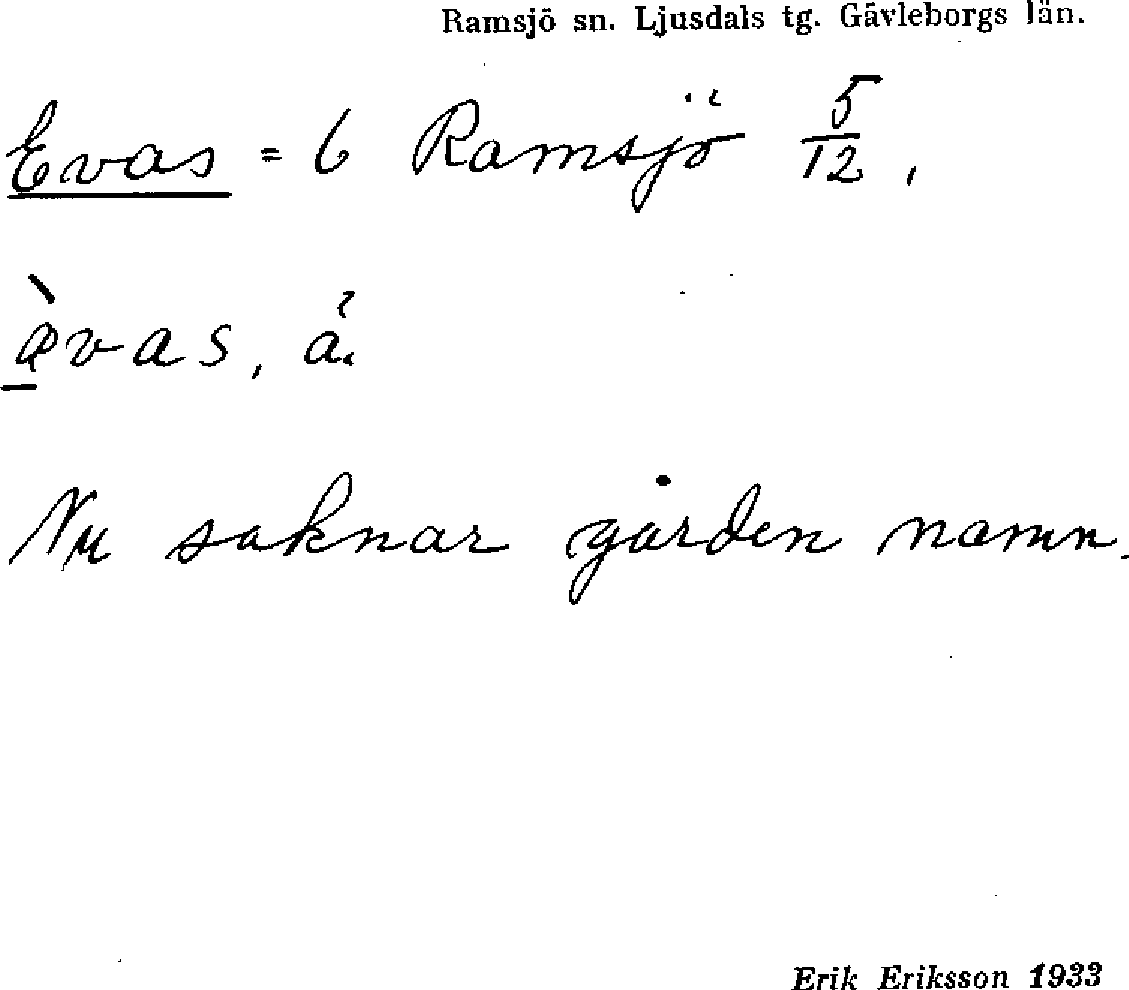 Ramsjö sn. Ljusdals tg. Gävleborgs län.
Evas = 6 Ramsjö 5/12,
ævas, å.
Nu saknar gården namn.
Erik Eriksson 1933